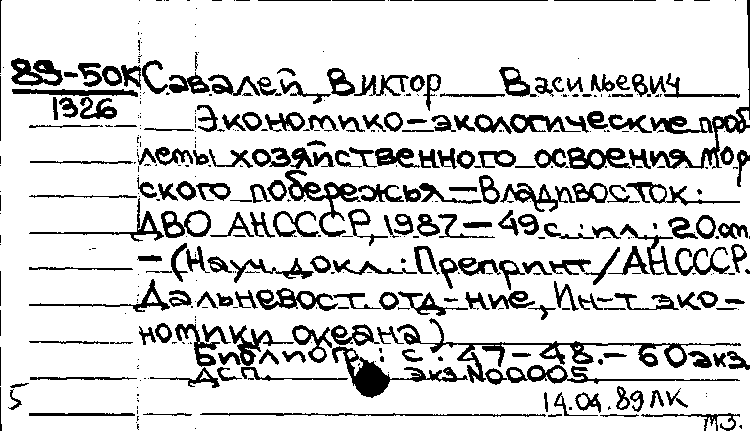 89-50К Савалей, Виктор Васильевич
1326
Экономико-экологические проб
лемы хозяйственного освоения мор
ского побережья — Владивосток:
ДВО АНСССР, 1987. — 49с.:ил.; 20см
— (Науч. докл.: Препринт/АНСССР.
Дальневост. отд-ние, Ин-т эко-
номики океана).
Библиогр.: с. 47-48. — 60экз.
ДСП. экз.№00005.
14.04.89 ЛК
5
тз.